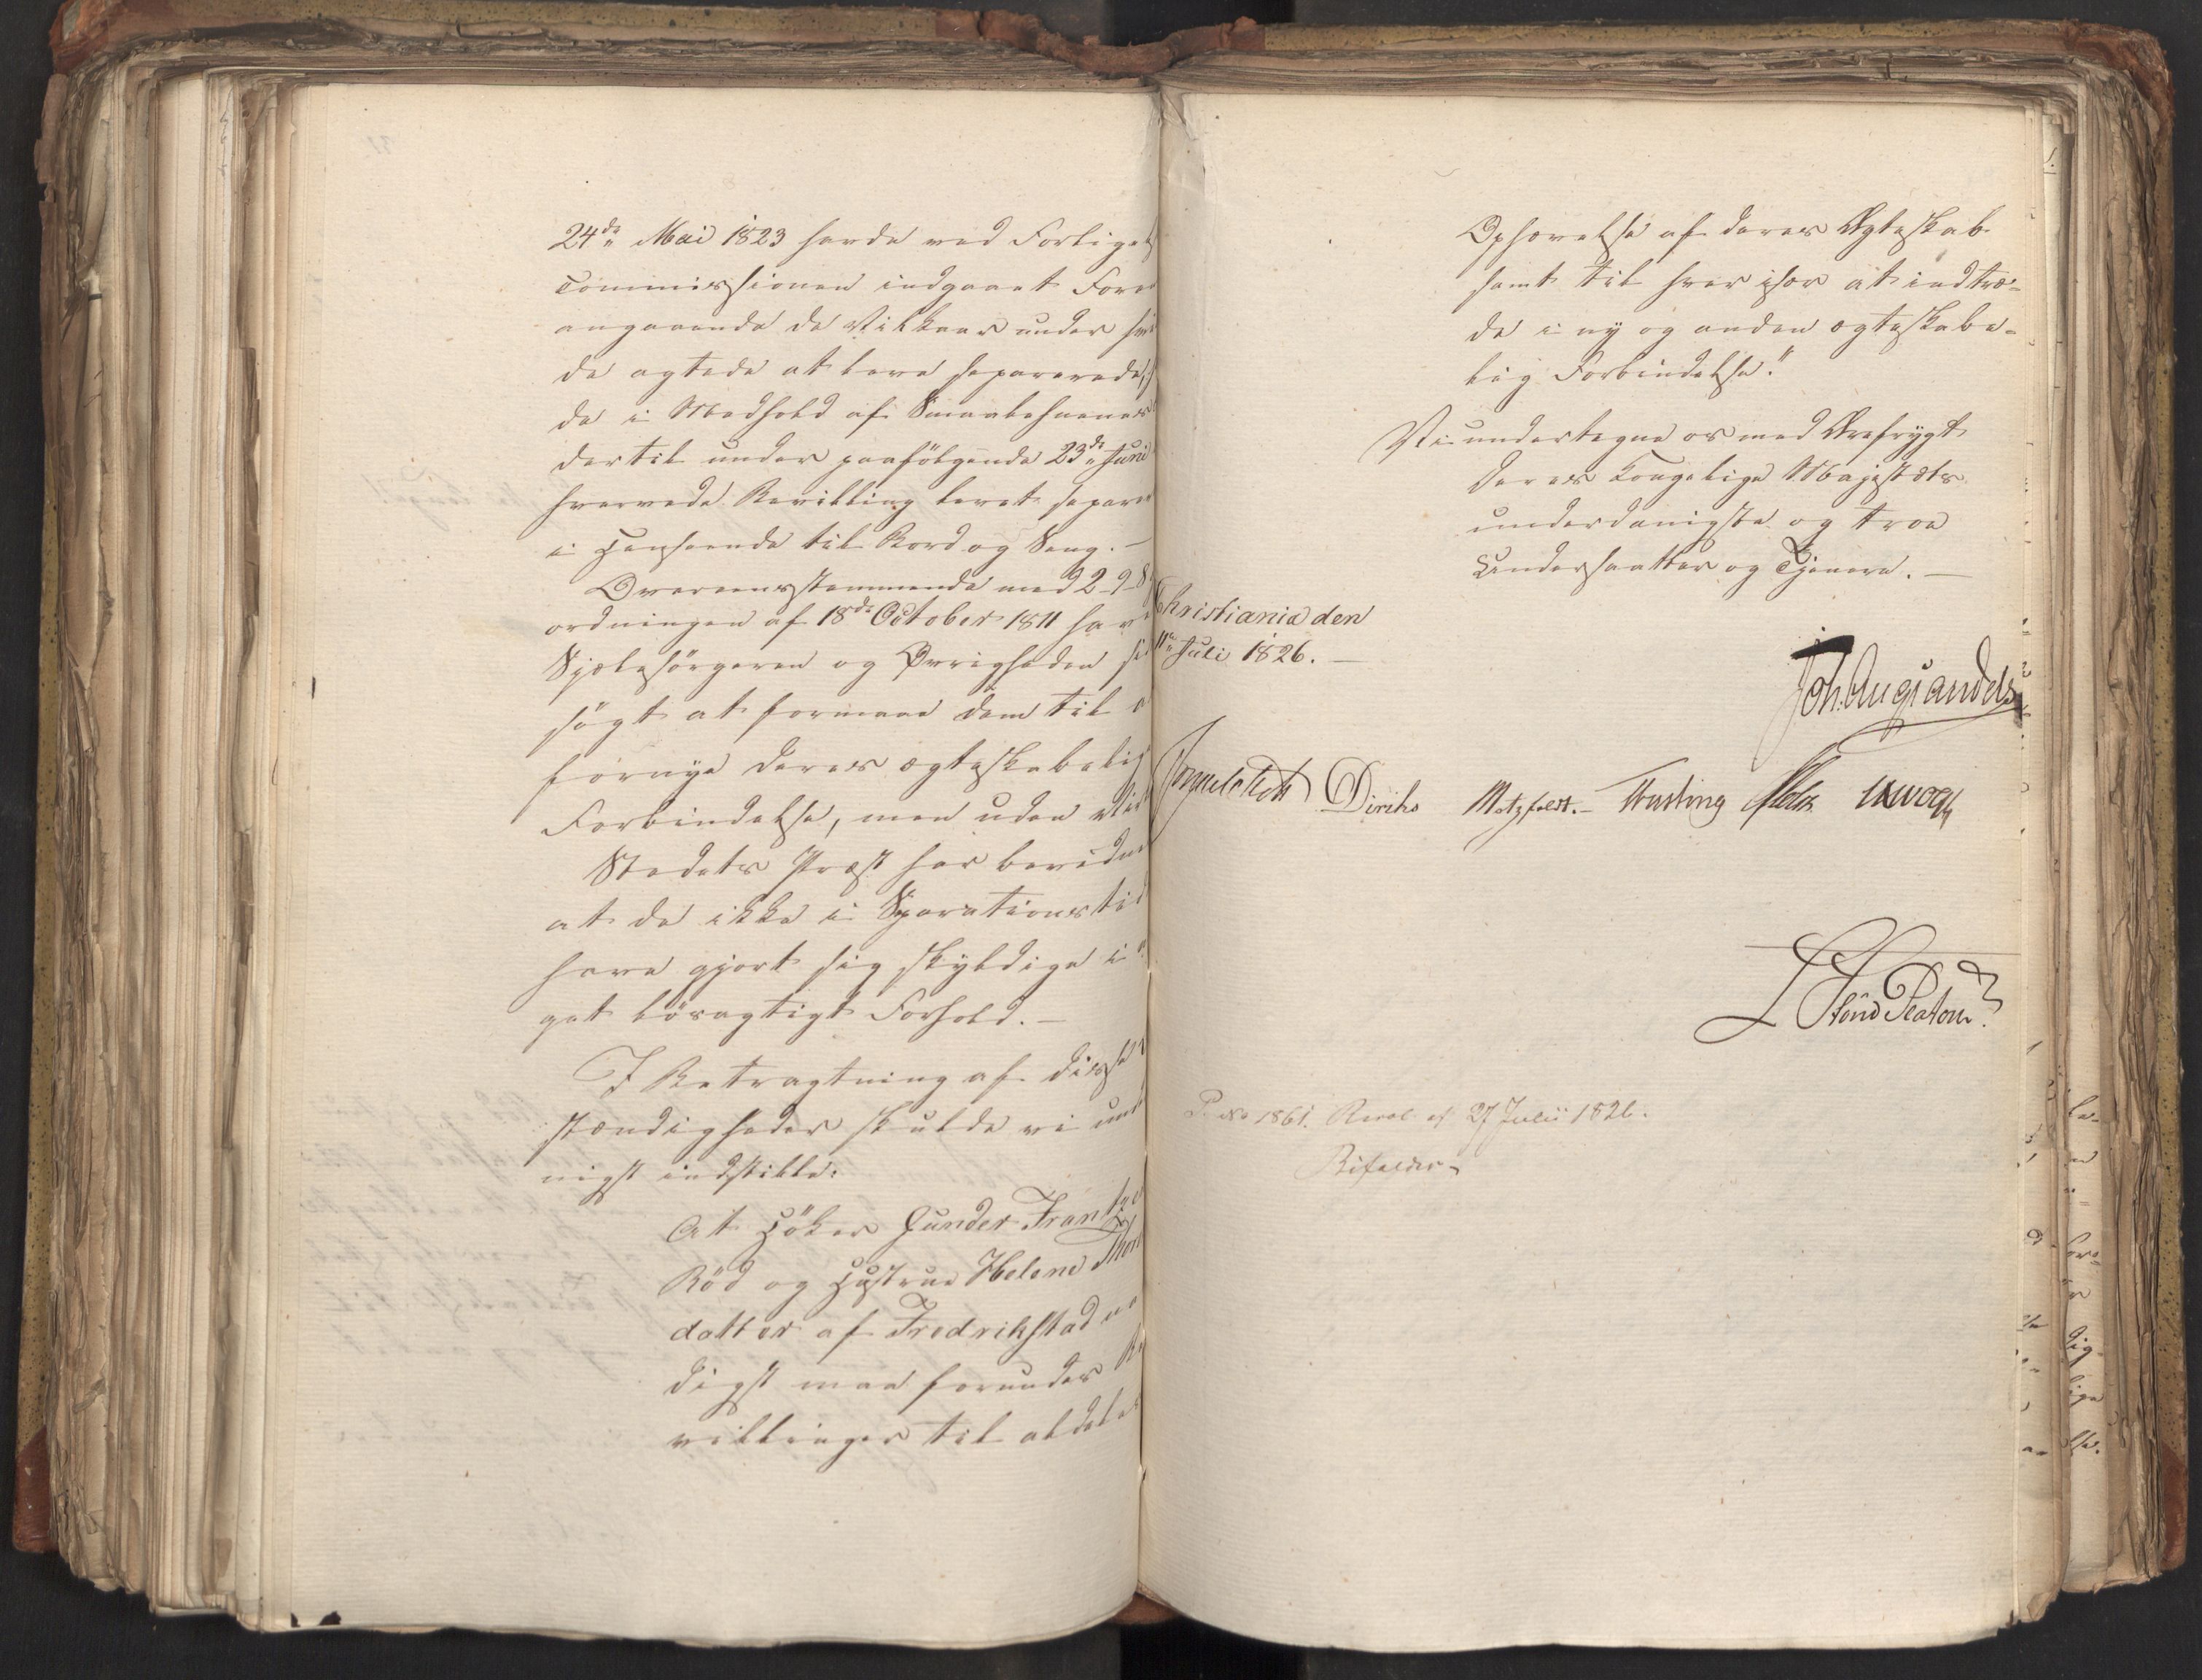 24de Mai 1823 havde ved Forligel
Commissionen indgaaet Foren
angaaende de Vilkaar under hvi
de agtede at leve separerede,
de i Medhold af
dertil under paafölgende 23de Juni
hvervede Bevilling levet separe
i Henseende til Bord og Seng. –
Overeensstemmende med
ordningen af 18de October 1811 have
Sjælesörgeren og Øvrigheden
sögt at formaae dem til a
fornye deres ægteskabelig
Forbindelse, men uden
Stedets Præst har bevidne
at de ikke i Sparationstid
have gjort sig skyldige i
get lösagtigt Forhold. –
I Betragtning af disse
stændigheder skulde vi und
nigst indstille:
At Höker Gunder Frantze
Röd og Hustrue Helene Thor
datter af Fredrikstad na
digst maa forundes Be
villinger til aldeles
Ophævelse af deres Ægteskab
samt til hver især at indtræ-
de i ny og anden ægteskabe-
lig Forbindelse."
Vi undertegne os med Ærefrygt
Deres Kongelige Majestæts
underdanigste og troe
Undersaatter og Tjenere. –
Christiania den
11te Juli 1826. –
Joh. Aug Sandels
Diriks Motzfeldt. – Krogh
P. No 1861. Resol. af 27 Julii 1826.
Bifaldes